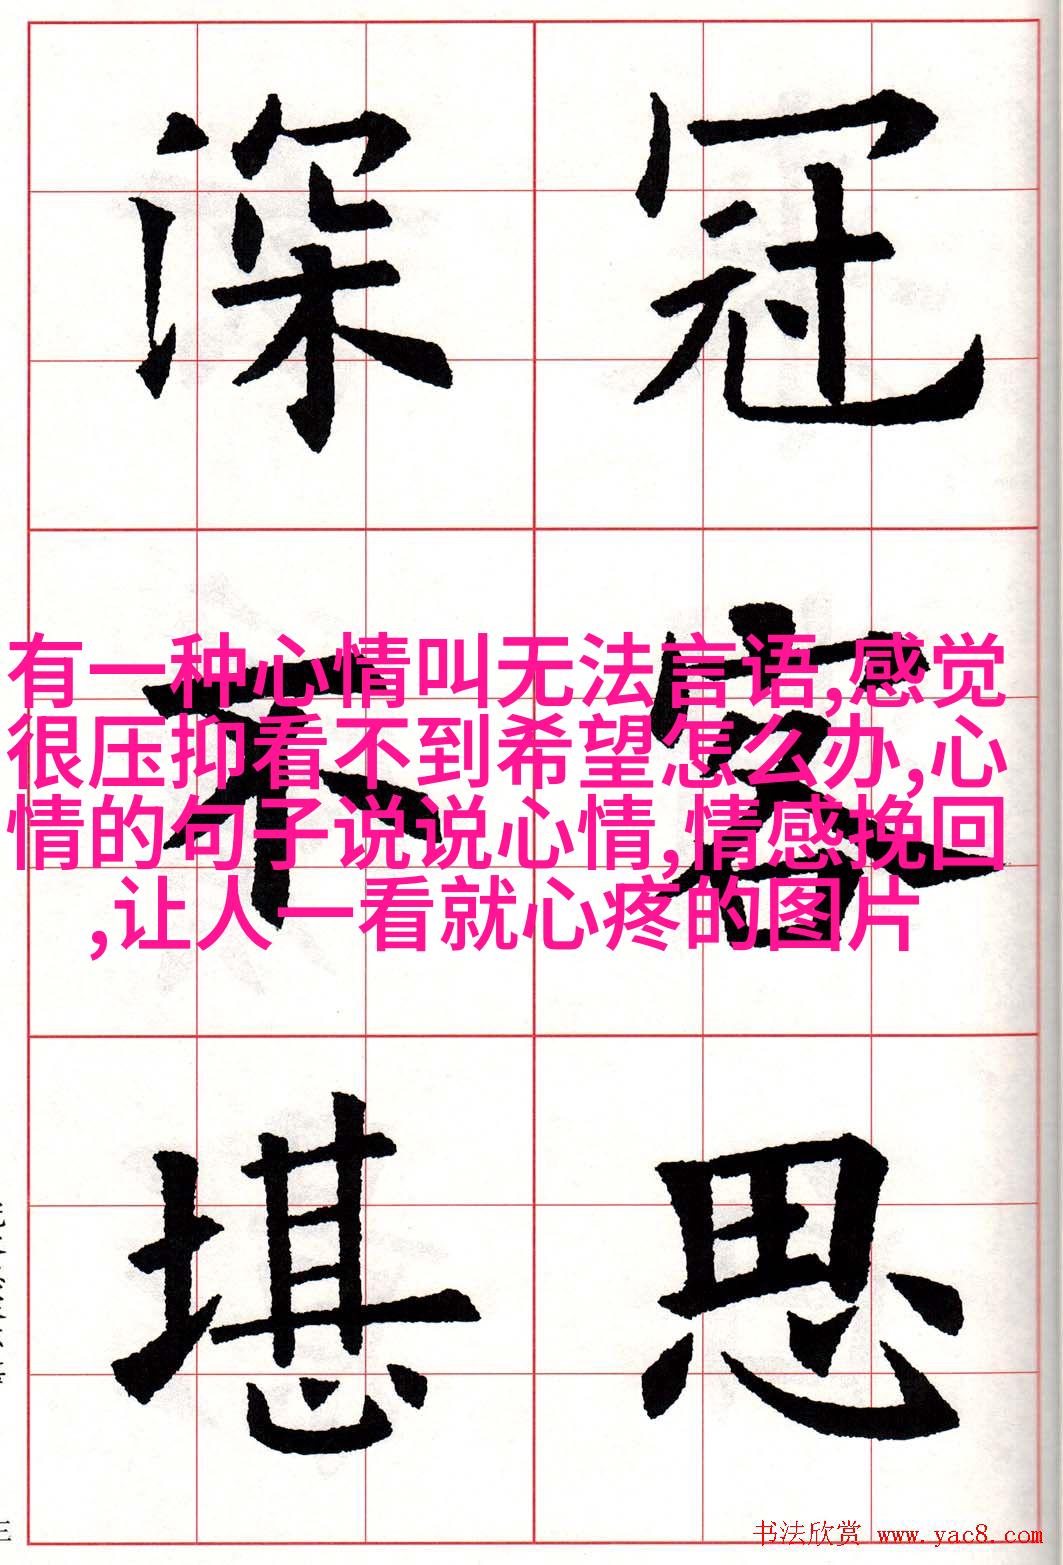 冠客思
深不堪
有一种心情叫无法言语,感觉
很压抑看不到希望怎么办,心
情的句子说说心情,情感挽回
,让人一看就心疼的图片
书法欣赏 www.yac8.com